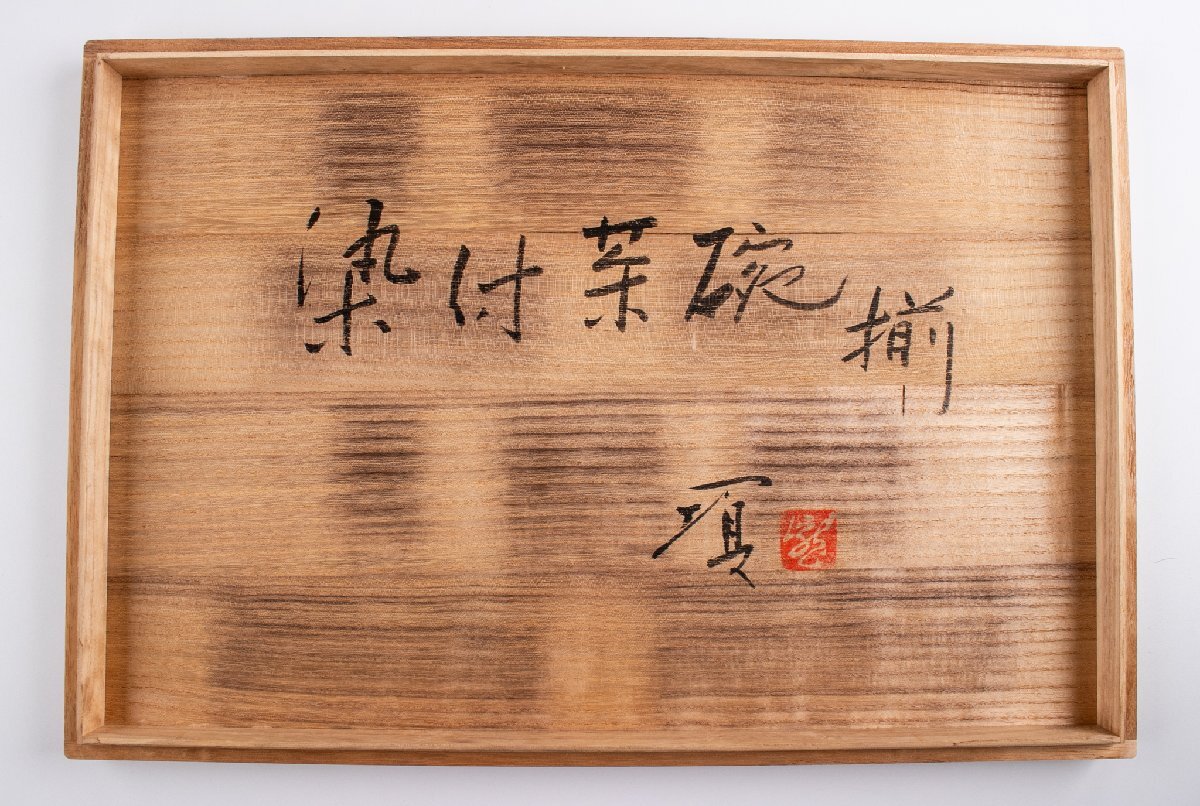 染付茶碗揃